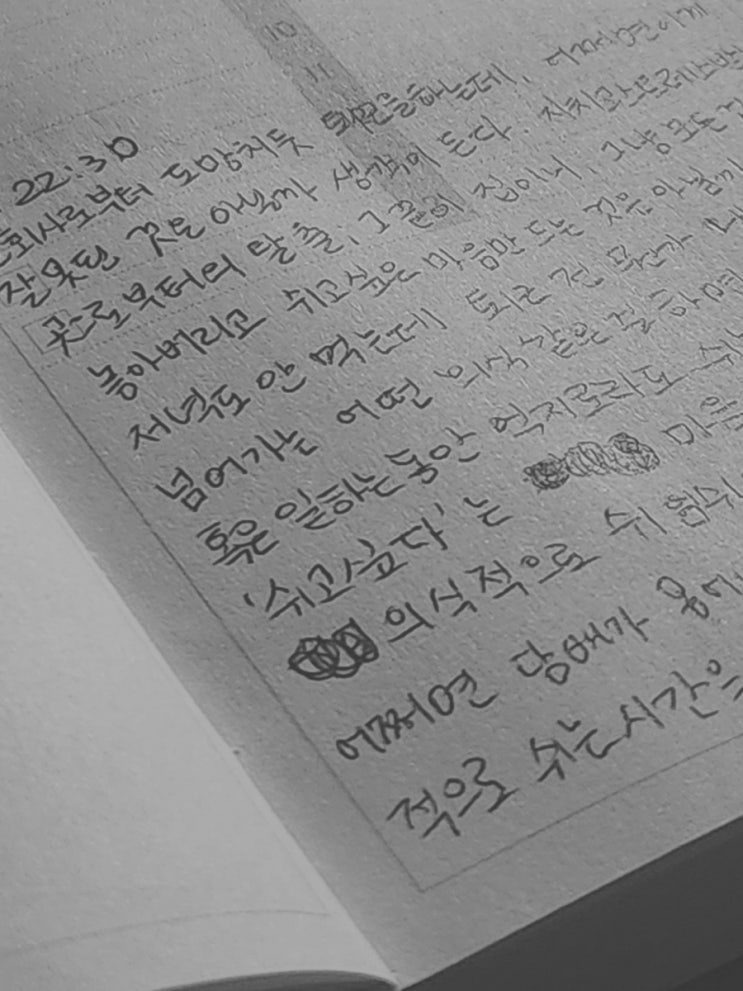 10
11
22:30
회사로부터 도망치듯 퇴근을하는데, 어쩌면 이게
잘못된 것은 아닐까 생각이 든다. 지치고 스트레스받
곳으로부터의 탈출, 그 끝이 집이니, 그냥 모든 걸
놓아버리고 쉬고싶은 마음만 드는 것은 아닐까
저녁도 안 먹는데 퇴근 전 무언가
넘어가는 어떤 의식 같은 걸 하면
혹은 일하는동안 억지로라도 쉬는
'쉬고싶다'는 마음
의식적으로 쉬엄쉬
어쩌면 담배가
적으로 쉬는시간은